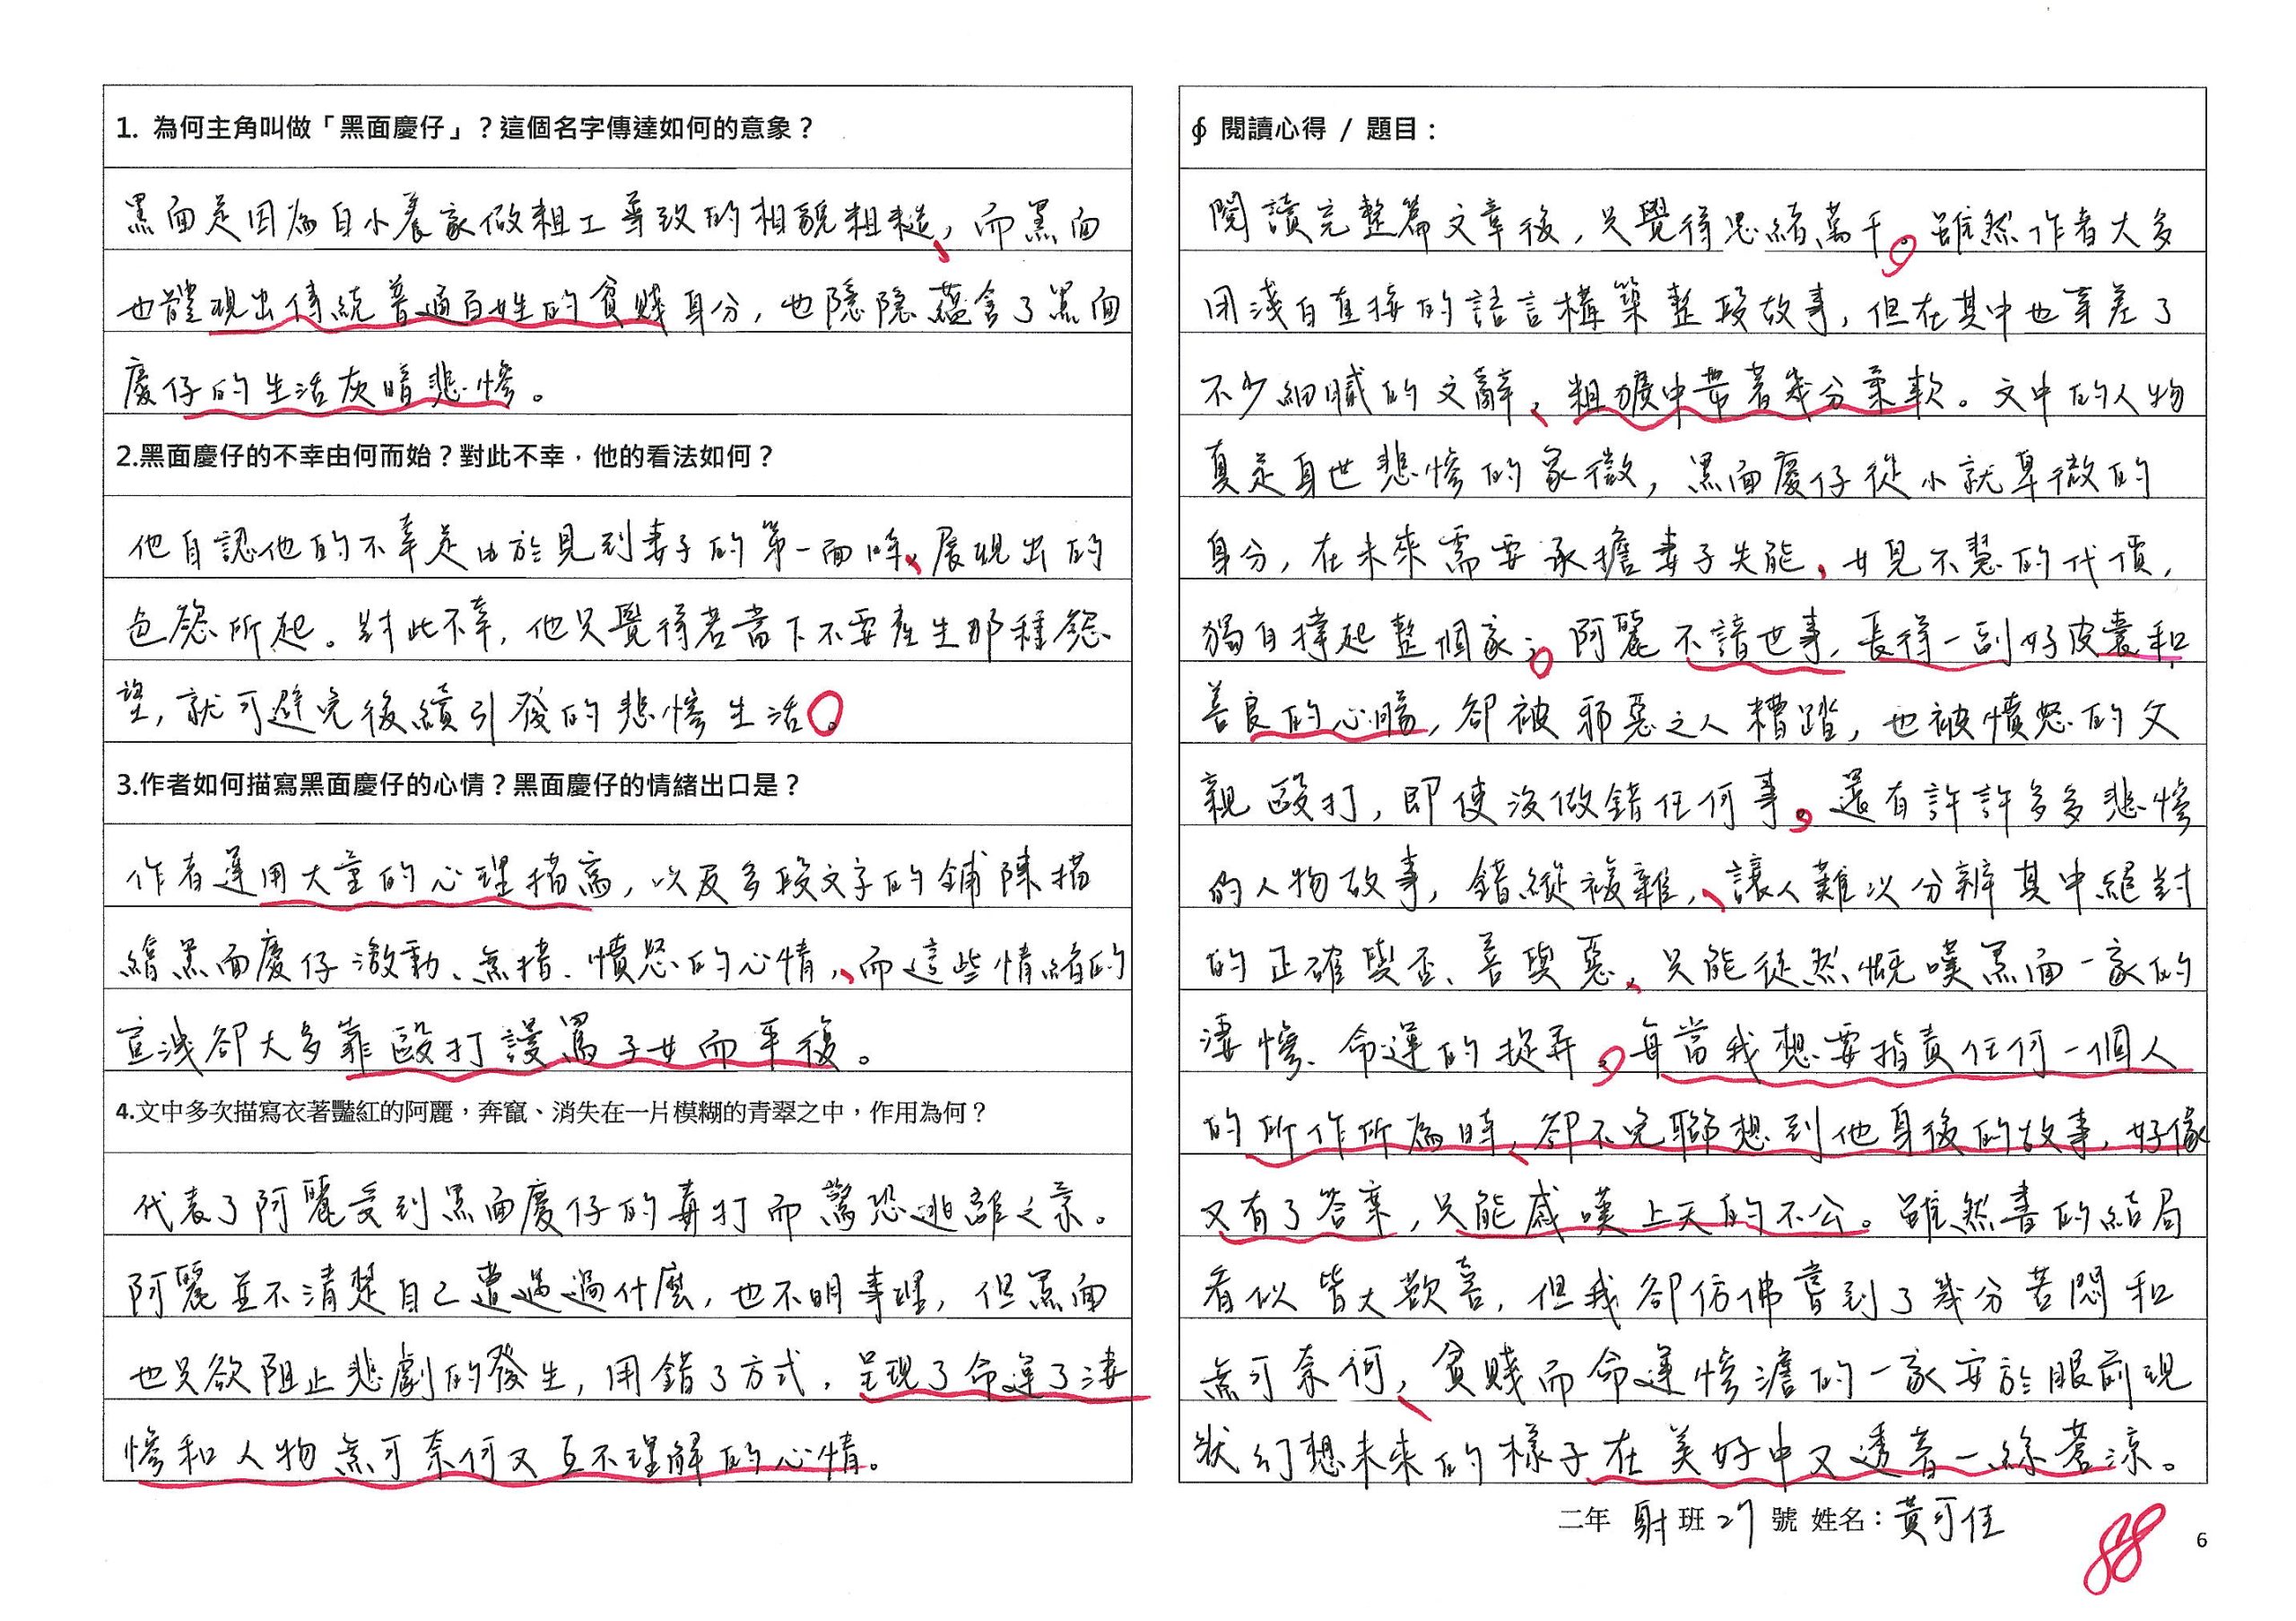 1. 為何主角叫做「黑面慶仔」？這個名字傳達如何的意象？
黑面是因為自小農家做粗工導致的相貌粗糙，而黑面
也體現出傳統普通百姓的貧賤身分，也隱隱蘊含了黑面
慶仔的生活灰暗悲慘。
2.黑面慶仔的不幸由何而始？對此不幸，他的看法如何？
他自認他的不幸是由於見到妻子的第一面時、展現出的
色慾所起。對此不幸，他只覺得若當下不要產生那種慾
望，就可避免後續引發的悲慘生活。
3.作者如何描寫黑面慶仔的心情？黑面慶仔的情緒出口是？
作者運用大量的心理描寫，以及多段文字的鋪陳描
繪黑面慶仔激動、無措、憤怒的心情，而這些情緒的
宣洩卻大多靠毆打謾罵子女而平復。
4.文中多次描寫衣著豔紅的阿麗，奔竄、消失在一片模糊的青翠之中，作用為何？
代表了阿麗受到黑面慶仔的毒打而驚恐逃離之景。
阿麗並不清楚自己遭遇過什麼，也不明事理，但黑面
也只欲阻止悲劇的發生，用錯了方式，呈現了命運了淒
慘和人物無可奈何又互不理解的心情。
∮ 閱讀心得 / 題目：
閱讀完整篇文章後，只覺得思緒萬千。雖然作者大多
用淺白直接的語言構築整段故事，但在其中也穿差了
不少細膩的文辭，粗獷中帶著幾分柔軟。文中的人物
真是身世悲慘的象徵，黑面慶仔從小就卑微的
身分，在未來需要承擔妻子失能，女兒不慧的代價，
獨自撐起整個家；阿麗不諳世事，長得一副好皮囊和
善良的心腸，卻被邪惡之人糟蹋，也被憤怒的父
親毆打，即使沒做錯任何事，還有許許多多悲慘
的人物故事，錯縱複雜，讓人難以分辨其中絕對
的正確與否、善與惡，只能徒然慨嘆黑面一家的
淒慘、命運的捉弄，每當我想要指責任何一個人
的所作所為時，卻不免聯想到他身後的故事，好像
又有了答案，只能感嘆上天的不公。雖然書的結局
看似皆大歡喜，但我卻仿佛嘗到了幾分苦悶和
無可奈何，貧賤而命運慘澹的一家安於眼前現
狀幻想未來的樣子在美好中又透著一絲蒼涼。
二年 射 班 27 號 姓名：黃可佳
88
6